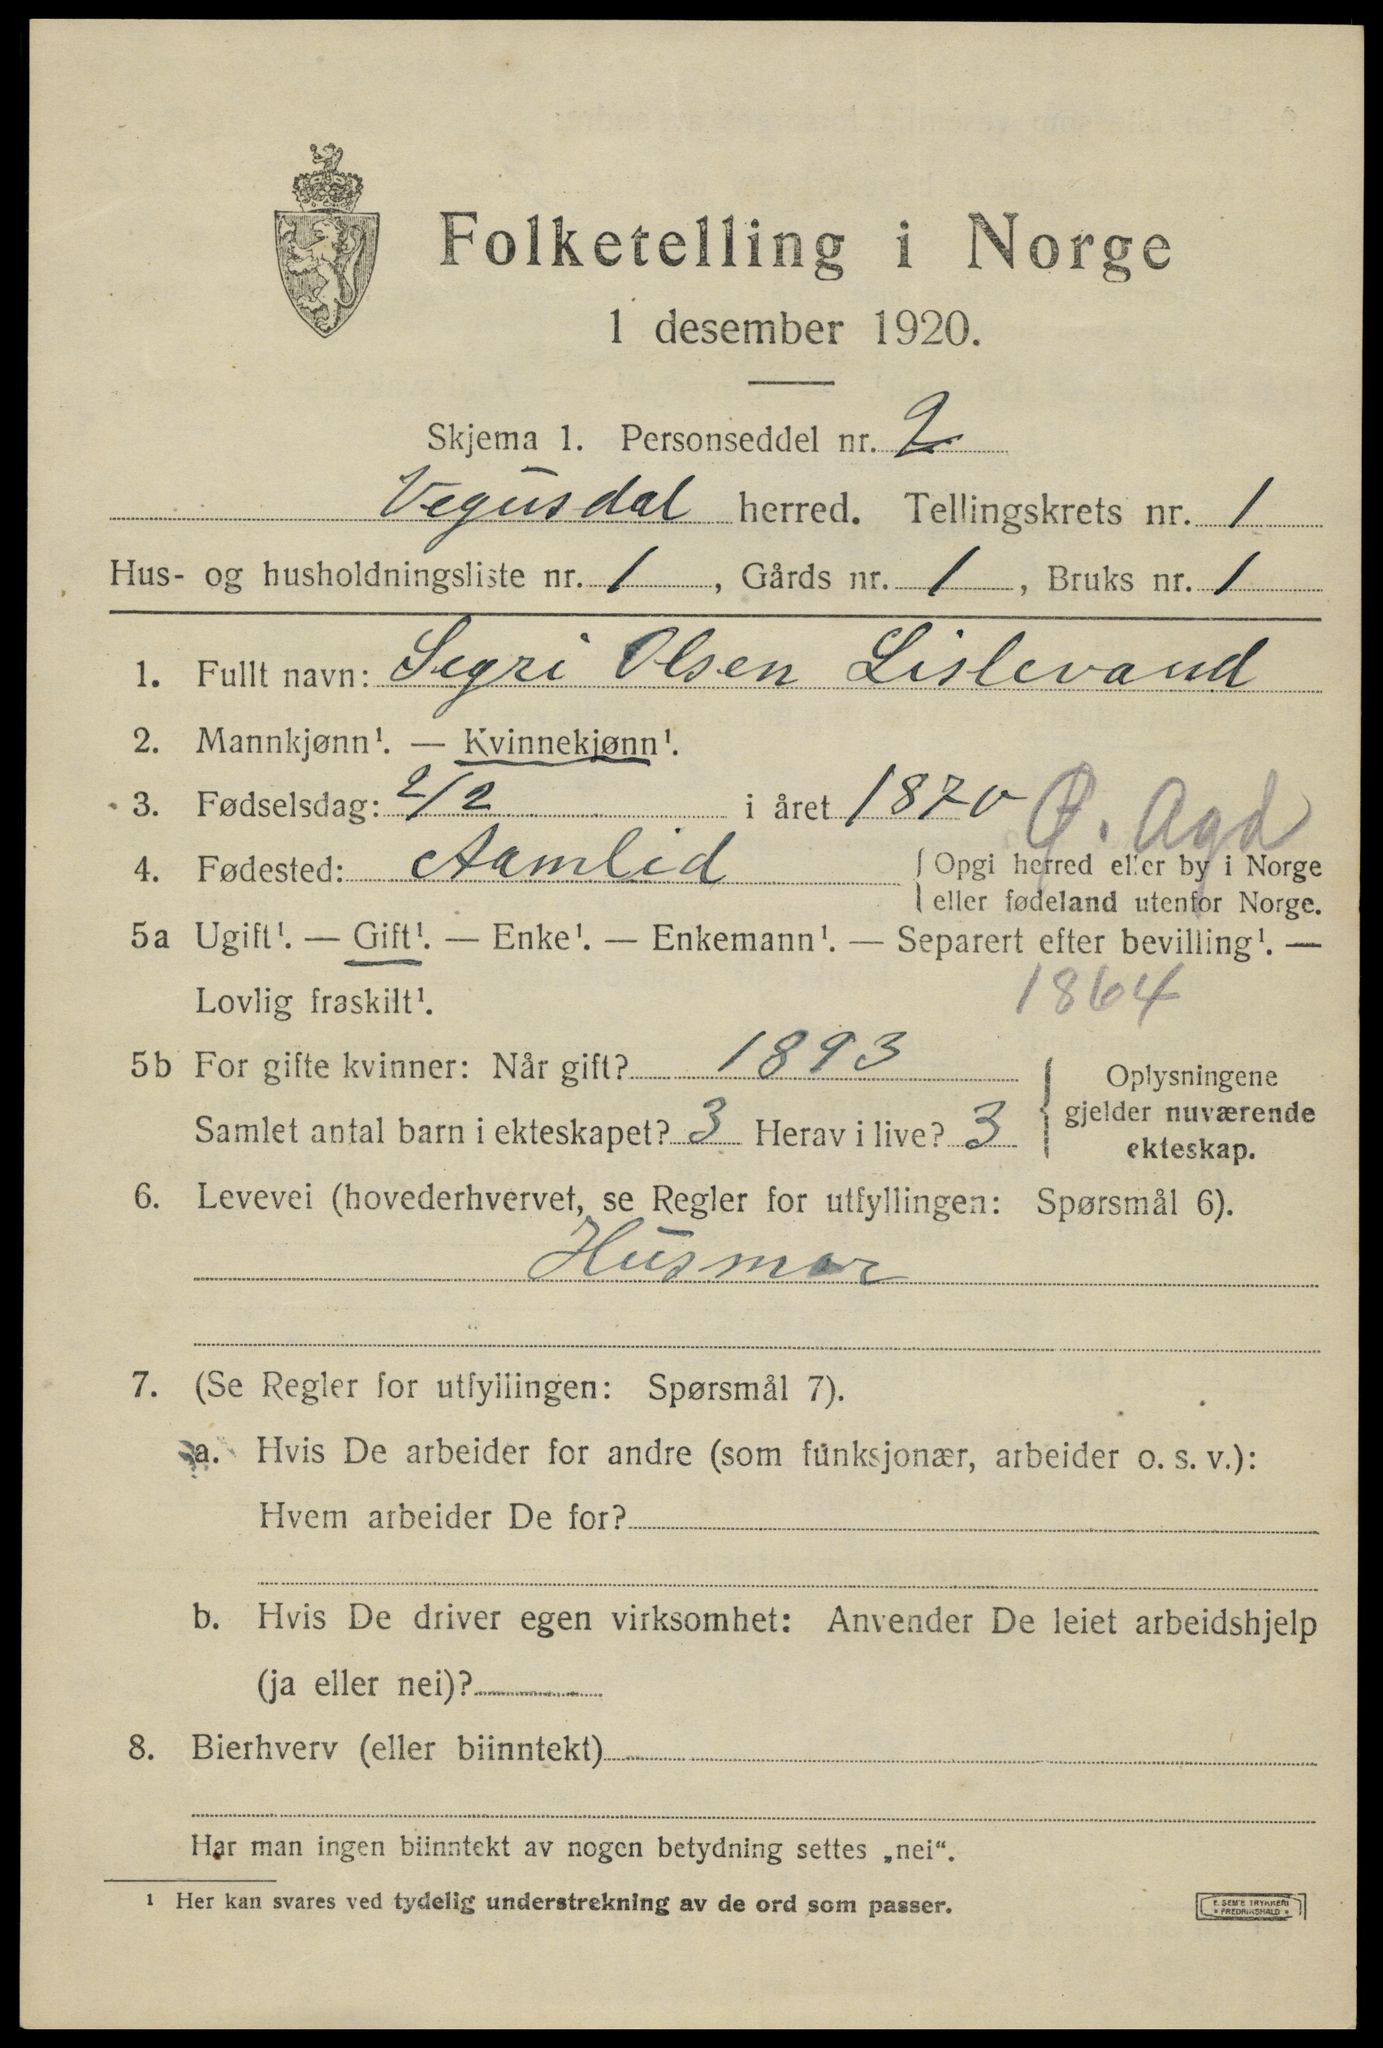 Folketelling i Norge
1 desember 1920.
Skjema 1. Personseddel nr. 2
Vegusdal herred. Tellingskrets nr. 1
Hus- og husholdningsliste nr. 1, Gårds nr. 1, Bruks nr. 1
1. Fullt navn: Segri Olsen Lislevand
2. Mannkjønn¹. — Kvinnekjønn¹.
3. Fødselsdag: 2/2 i året 1870 Ø. Agd
4. Fødested: Aamlid { Opgi herred eller by i Norge
eller fødeland utenfor Norge.
5a Ugift¹. — Gift¹. — Enke¹. — Enkemann¹. — Separert efter bevilling¹. —
Lovlig fraskilt¹. 1864
5b For gifte kvinner: Når gift? 1893
Samlet antal barn i ekteskapet? 3 Herav i live? 3
Oplysningene
gjelder nuværende
ekteskap.
6. Levevei (hovederhvervet, se Regler for utfyllingen: Spørsmål 6).
Husmor
7. (Se Regler for utfyllingen: Spørsmål 7).
a. Hvis De arbeider for andre (som funksjonær, arbeider o. s. v.):
Hvem arbeider De for?
b. Hvis De driver egen virksomhet: Anvender De leiet arbeidshjelp
(ja eller nei)?
8. Bierhverv (eller biinntekt)
Har man ingen biinntekt av nogen betydning settes „nei“.
¹ Her kan svares ved tydelig understrekning av de ord som passer.
E. SEM'S TRYKKERI
* FREDRIKSHALD *